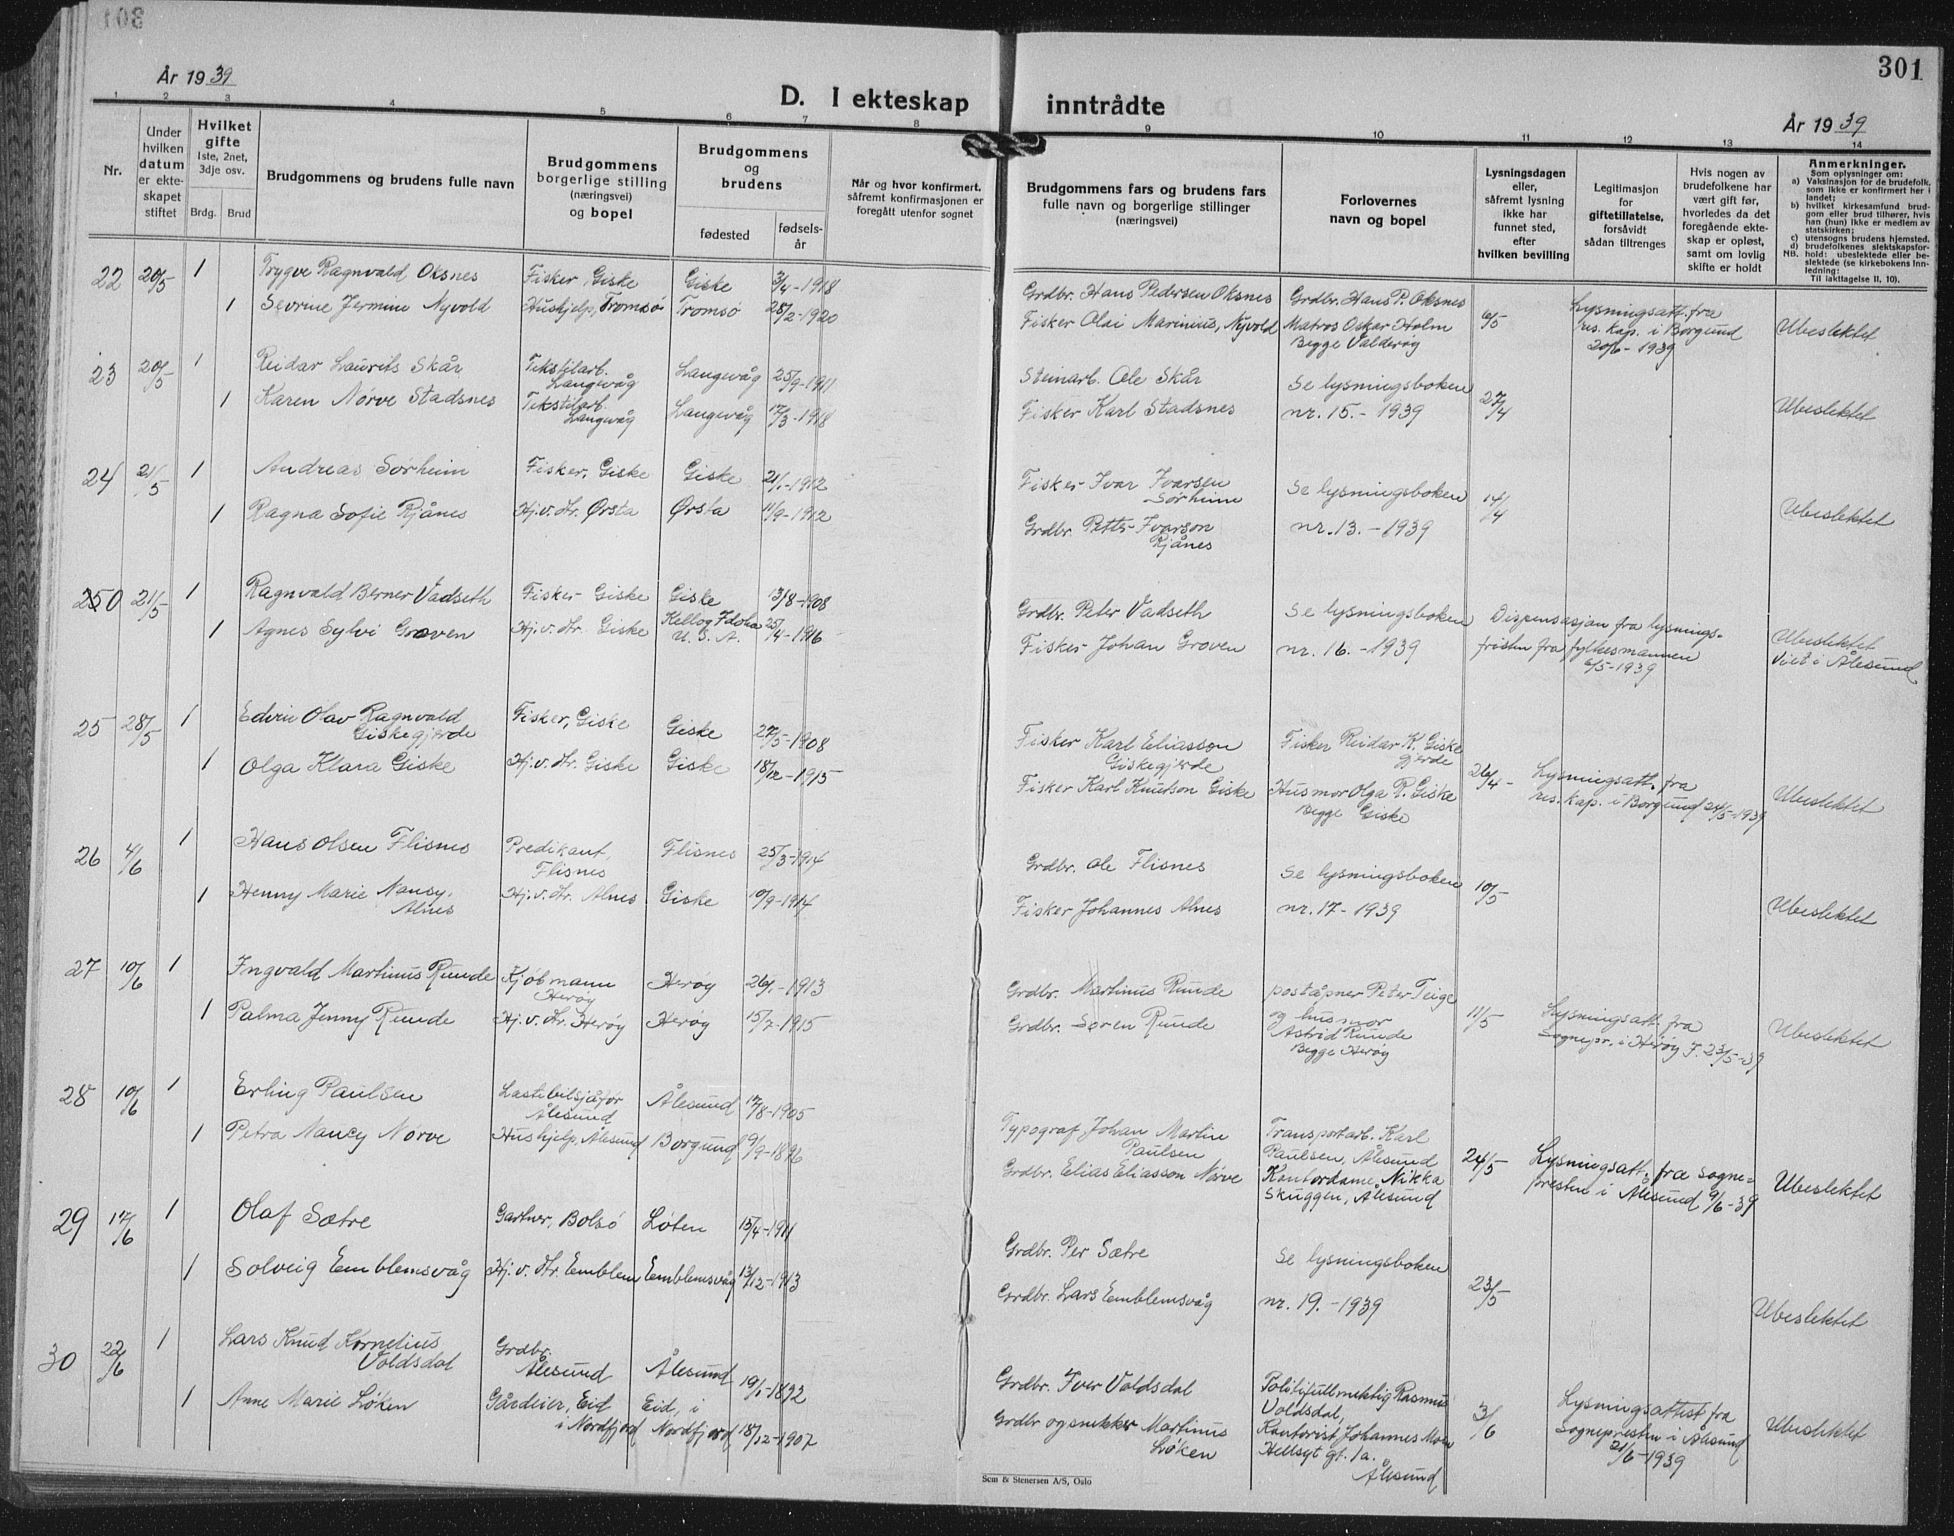 301
År 1939
D. I ekteskap inntrådte
År 1939
1 2 3 4 5 6 7 8 9 10 11 12 13 14
Nr.
Under hvilken datum er ekteskapet stiftet
Hvilket gifte
1ste, 2net, 3dje osv.
Brdg. Brud
Brudgommens og brudens fulle navn
Brudgommens borgerlige stilling (næringsvei) og bopel
Brudgommens og brudens
fødested
fødselsår
Når og hvor konfirmert, såfremt konfirmasjonen er foregått utenfor sognet
Brudgommens fars og brudens fars fulle navn og borgerlige stillinger (næringsvei)
Forlovernes navn og bopel
Lysningsdagen eller, såfremt lysning ikke har funnet sted, efter hvilken bevilling
Legitimasjon for giftetillatelse, forsåvidt sådan tiltrenges
Hvis nogen av brudefolkene har vært gift før, hvorledes da det foregående ekteskap er opløst, samt om lovlig skifte er holdt
Anmerkninger.
Som oplysninger om:
a) Vaksinasjon for de brudefolk, som ikke er konfirmert her i landet;
b) hvilket kirkesamfund brudgom eller brud tilhører, hvis han (hun) ikke er medlem av statskirken;
c) utensogns brudens hjemsted.
d) brudefolkenes slektskapsforhold: ubeslektede eller beslektede (se kirkebokens Innledning:
NB. Til iakttagelse II, 10).
22 20/5 1 Trygve Ragnvald Oksnes Fisker, Giske Giske 3/4-1918 Grdbr. Hans Pedersen Oksnes Grdbr. Hans P. Oksnes 6/5 Lysningsatt. fra
1 Sevrine Jermine Nyvold Hushjelp, Tromsø Tromsø 28/2-1920 Fisker Olai Marinius, Nyvold Matros Oskar Holm res. kap. i Borgund Ubeslektet
Begge Valderøy 20/6-1939
23 20/5 1 Reidar Laurits Skår Tekstilarb. Langevåg Langevåg 25/9-1911 Steinarb. Ole Skår Se lysningsboken 27/4
1 Karen Nørve Stadsnes Tekstilarb. Langevåg Langevåg 17/3-1918 Fisker Karl Stadsnes nr. 15.-1939 Ubeslektet
24 21/5 1 Andreas Sørheim Fisker, Giske Giske 21/1-1912 Fisker Ivar Ivarsen Sørheim Se lysningsboken 14/4
1 Ragna Sofie Rjånes Hj.v.Hr. Ørsta Ørsta 11/9-1912 Grdbr. Petter Ivarson Rjånes nr. 13.-1939 Ubeslektet
250 21/5 1 Ragnvald Berner Vadseth Fisker Giske Giske 13/8-1908 Grdbr. Peter Vadseth Se lysningsboken Dispensasjon fra lysnings-
1 Agnes Sylvi Groven Hj.v.Hr. Giske Kellog Idoha U.S.A. 25/4-1916 Fisker Johan Groven nr. 16.-1939 fristen fra fylkesmannen 6/5-1939 Ubeslektet
Viet i Ålesund
25 28/5 1 Edvin Olav Ragnvald Giskegjerde Fisker, Giske Giske 27/5-1908 Fisker Karl Eliasson Giskegjerde Fisker Reidar K. Giskegjerde 26/4- Lysningsatt. fra
1 Olga Klara Giske Hj.v.Hr. Giske Giske 18/12-1915 Fisker Karl Knutson Giske Husmor Olga P. Giske res. kap. i Borgund 24/5-1939 Ubeslektet
Begge Giske
26 4/6 1 Hans Olsen Flisnes Predikant, Flisnes Flisnes 25/3-1914 Grdbr. Ole Flisnes Se lysningsboken 10/5
1 Henny Marie Nancy Alnes Hj.v.Hr. Alnes Giske 10/9-1914 Fisker Johannes Alnes nr. 17-1939 Ubeslektet
27 10/6 1 Ingvald Martinus Runde Kjøbmann Herøy Herøy 26/1-1913 Grdbr. Martinus Runde poståpner Peter Teige 11/5 Lysningsatt. fra
1 Palma Jenny Runde Hj.v.Hr. Herøy Herøy 15/7-1915 Grdbr. Søren Runde og husmor Astrid Runde Sognepr. i Herøy F. 23/5-39 Ubeslektet
Begge Herøy
28 10/6 1 Erling Paulsen Lastebilsjåfør Ålesund Ålesund 17/8-1905 Typograf Johan Martin Paulsen Transportarb. Karl Paulsen, Ålesund 24/5 Lysningsatt. fra sogne-
1 Petra Nancy Nørve Hushjelp, Ålesund Borgund 9/9-1896 Grdbr. Elias Eliasson Nørve Kontordame Nikka Skuggen, Ålesund presten i Ålesund 9/6-39 Ubeslektet
29 17/6 1 Olaf Sætre Gartner, Bolsø Løten 15/4-1911 Grdbr. Per Sætre Se lysningsboken 23/5
1 Solveig Emblemsvåg Hj.v.Hr. Emblem Emblemsvåg 13/12-1913 Grdbr. Lars Emblemsvåg nr. 19.-1939 Ubeslektet
30 22/6 1 Lars Knud Kornelius Voldsdal Grdbr. Ålesund Ålesund 19/1-1892 Grdbr. Iver Voldsdal Politifullmektig Rasmus Voldsdal, 3/6 Lysningsattest fra
1 Anne Marie Løken Gårdeier, Eid i Nordfjord Eid, i Nordfjord 18/12-1907 Grdbr og snekker Martinus Løken Kontorist Johannes Moen Sognepresten i Ålesund Ubeslektet
gt. 1a. Ålesund 21/6-1939
Sem & Stenersen A/S, Oslo